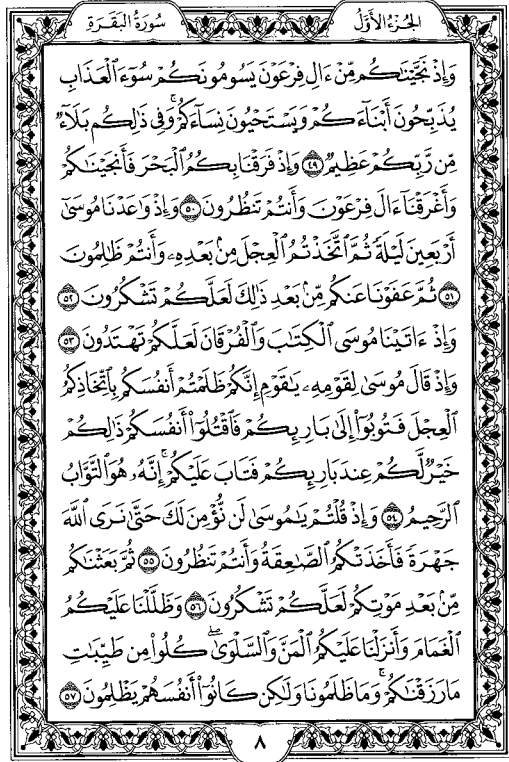 الجُزْءُ الأَوَّلُ
سُورَةُ البَقَرَةِ
وَإِذْ نَجَّيْنَـٰكُم مِّنْ ءَالِ فِرْعَوْنَ يَسُومُونَكُمْ سُوٓءَ ٱلْعَذَابِ
يُذَبِّحُونَ أَبْنَآءَكُمْ وَيَسْتَحْيُونَ نِسَآءَكُمْ ۚ وَفِى ذَٰلِكُم بَلَآءٌ
مِّن رَّبِّكُمْ عَظِيمٌ ۝٤٩ وَإِذْ فَرَقْنَا بِكُمُ ٱلْبَحْرَ فَأَنجَيْنَـٰكُمْ
وَأَغْرَقْنَآ ءَالَ فِرْعَوْنَ وَأَنتُمْ تَنظُرُونَ ۝٥٠ وَإِذْ وَٰعَدْنَا مُوسَىٰٓ
أَرْبَعِينَ لَيْلَةً ثُمَّ ٱتَّخَذْتُمُ ٱلْعِجْلَ مِنۢ بَعْدِهِۦ وَأَنتُمْ ظَـٰلِمُونَ
۝٥١ ثُمَّ عَفَوْنَا عَنكُم مِّنۢ بَعْدِ ذَٰلِكَ لَعَلَّكُمْ تَشْكُرُونَ ۝٥٢
وَإِذْ ءَاتَيْنَا مُوسَى ٱلْكِتَـٰبَ وَٱلْفُرْقَانَ لَعَلَّكُمْ تَهْتَدُونَ ۝٥٣
وَإِذْ قَالَ مُوسَىٰ لِقَوْمِهِۦ يَـٰقَوْمِ إِنَّكُمْ ظَلَمْتُمْ أَنفُسَكُم بِٱتِّخَاذِكُمُ
ٱلْعِجْلَ فَتُوبُوٓا۟ إِلَىٰ بَارِئِكُمْ فَٱقْتُلُوٓا۟ أَنفُسَكُمْ ذَٰلِكُمْ
خَيْرٌ لَّكُمْ عِندَ بَارِئِكُمْ فَتَابَ عَلَيْكُمْ ۚ إِنَّهُۥ هُوَ ٱلتَّوَّابُ
ٱلرَّحِيمُ ۝٥٤ وَإِذْ قُلْتُمْ يَـٰمُوسَىٰ لَن نُّؤْمِنَ لَكَ حَتَّىٰ نَرَى ٱللَّهَ
جَهْرَةً فَأَخَذَتْكُمُ ٱلصَّـٰعِقَةُ وَأَنتُمْ تَنظُرُونَ ۝٥٥ ثُمَّ بَعَثْنَـٰكُم
مِّنۢ بَعْدِ مَوْتِكُمْ لَعَلَّكُمْ تَشْكُرُونَ ۝٥٦ وَظَلَّلْنَا عَلَيْكُمُ
ٱلْغَمَامَ وَأَنزَلْنَا عَلَيْكُمُ ٱلْمَنَّ وَٱلسَّلْوَىٰ ۖ كُلُوا۟ مِن طَيِّبَـٰتِ
مَا رَزَقْنَـٰكُمْ ۖ وَمَا ظَلَمُونَا وَلَـٰكِن كَانُوٓا۟ أَنفُسَهُمْ يَظْلِمُونَ ۝٥٧
٨